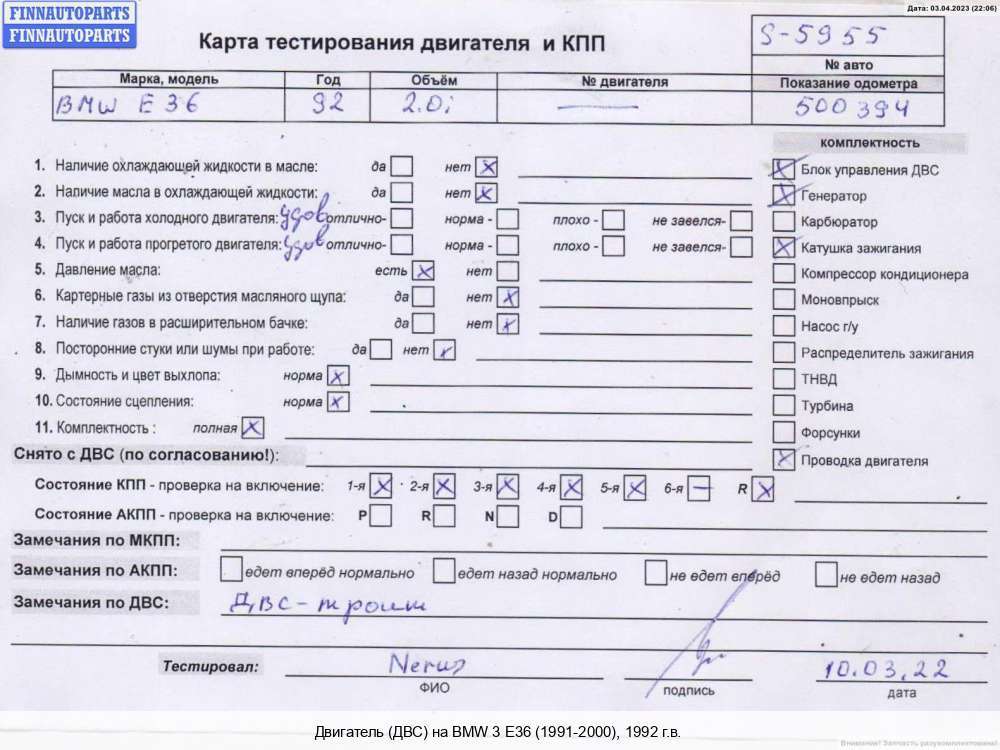 FINNAUTOPARTS
FINNAUTOPARTS
Дата: 03.04.2023 (22:06)
Карта тестирования двигателя и КПП
S-5955
№ авто
Марка, модель Год Объём № двигателя Показание одометра
BMW E 36 92 2.0i — 500 394
комплектность
1. Наличие охлаждающей жидкости в масле: да нет X
X Блок управления ДВС
2. Наличие масла в охлаждающей жидкости: да нет X
X Генератор
3. Пуск и работа холодного двигателя: удов отлично- норма - плохо - не завелся-
Карбюратор
4. Пуск и работа прогретого двигателя: удов отлично- норма - плохо - не завелся-
X Катушка зажигания
5. Давление масла: есть X нет
Компрессор кондиционера
6. Картерные газы из отверстия масляного щупа: да нет X
Моновпрыск
7. Наличие газов в расширительном бачке: да нет X
Насос г/у
8. Посторонние стуки или шумы при работе: да нет X
Распределитель зажигания
9. Дымность и цвет выхлопа: норма X
ТНВД
10. Состояние сцепления: норма X
Турбина
11. Комплектность : полная X
Форсунки
Снято с ДВС (по согласованию!):
X Проводка двигателя
Состояние КПП - проверка на включение: 1-я X 2-я X 3-я X 4-я X 5-я X 6-я — R X
Состояние АКПП - проверка на включение: P R N D
Замечания по МКПП:
Замечания по АКПП: едет вперёд нормально едет назад нормально не едет вперёд не едет назад
Замечания по ДВС: ДВС - троит
Тестировал: 10.03.22
ФИО подпись дата
Двигатель (ДВС) на BMW 3 E36 (1991-2000), 1992 г.в.
Внимание! Запчасть разукомплектована!